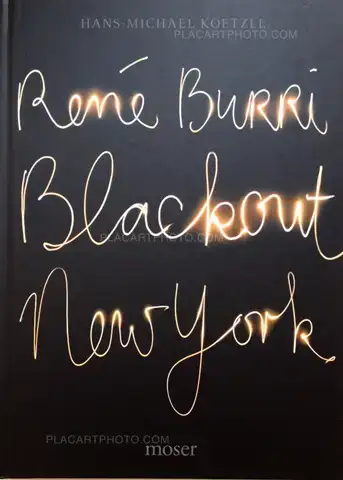 HANS-MICHAEL KOETZLE
PLACARTPHOTO.COM
René Burri
Blackout
PLACARTPHOTO.COM
New York
PLACARTPHOTO.COM
moser